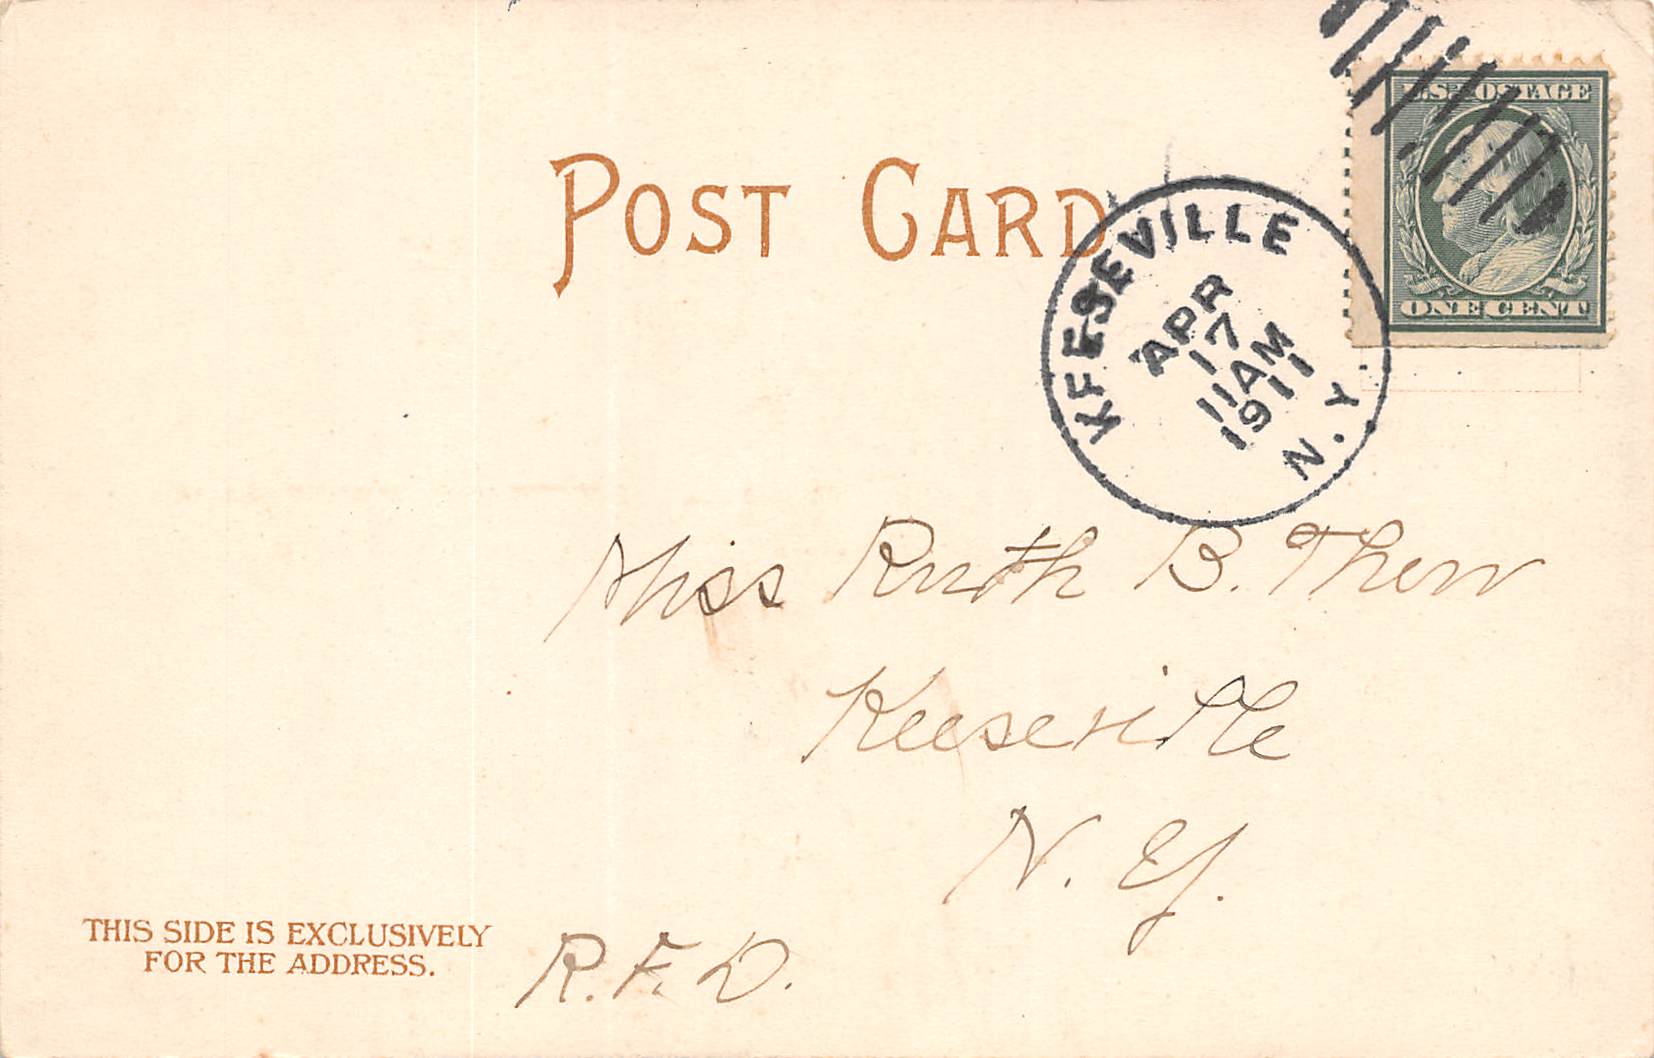 U.S. POSTAGE
POST CARD
KEESEVILLE
APR
17
11 AM
1911
N.Y.
ONE CENT
Miss Ruth B. Thew
Keeseville
N. Y.
THIS SIDE IS EXCLUSIVELY
FOR THE ADDRESS.
R.F.D.